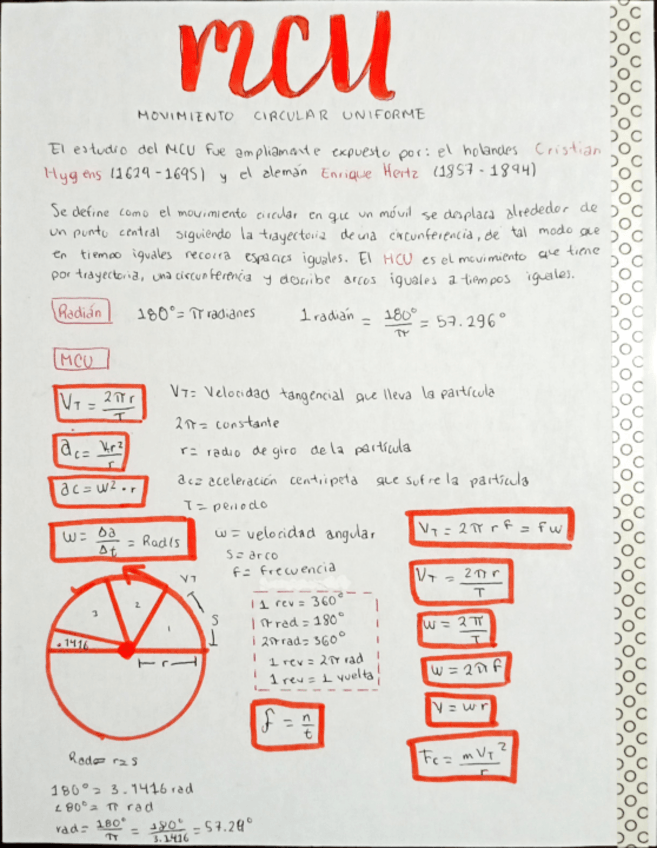 MCU
MOVIMIENTO CIRCULAR UNIFORME
El estudio del MCU fue ampliamente expuesto por: el holandes Cristian
Hygens (1629-1695) y el alemán Enrique Hertz (1857-1894)
Se define como el movimiento circular en que un móvil se desplaza alrededor de
un punto central siguiendo la trayectoria de una circunferencia, de tal modo que
en tiempo iguales recorra espacios iguales. El MCU es el movimiento que tiene
por trayectoria, una circunferencia y describe arcos iguales a tiempos iguales.
Radián 180° = π radianes 1 radian = 180°/π = 57.296°
MCU
VT = 2πr/T
VT = Velocidad tangencial que lleva la partícula
2π = constante
ac = VT²/r
r = radio de giro de la partícula
ac = w² · r
ac = aceleración centripeta que sufre la partícula
T = periodo
w = Δa/Δt = Rad/s
w = velocidad angular
S = arco
f = frecuencia
VT = 2π r f = f w
VT = 2πr/T
w = 2π/T
w = 2πf
V = wr
Fc = m VT²/r
1 rev = 360°
π rad = 180°
2π rad = 360°
1 rev = 2π rad
1 rev = 1 vuelta
f = n/t
VT
S
3
2
1
.1416
r
Rad = r = s
180° = 3.1416 rad
180° = π rad
rad = 180°/π = 180°/3.1416 = 57.29°